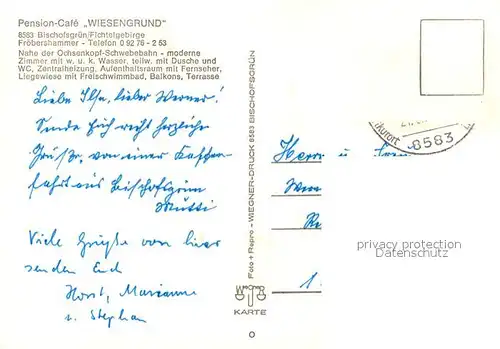 Pension-Café „WIESENGRUND"
8583 Bischofsgrün/Fichtelgebirge
Fröbershammer - Telefon 0 92 76 - 2 53
Nähe der Ochsenkopf-Schwebebahn - moderne
Zimmer mit w. u. k. Wasser, teilw. mit Dusche und
WC, Zentralheizung, Aufenthaltsraum mit Fernseher,
Liegewiese mit Freischwimmbad, Balkons, Terrasse
Liebe Ilse, lieber Werner!
Sende Euch recht herzliche
Grüße, von einer Kaffee-
fahrt aus Bischofsgrün
Mutti
Viele Grüße von hier
senden Euch
Horst, Marianne
u. Stephan
Foto + Repro - WIEGNER-DRUCK 8583 BISCHOFSGRÜN
KARTE
Kurort
8583
Herr u.
privacy protection